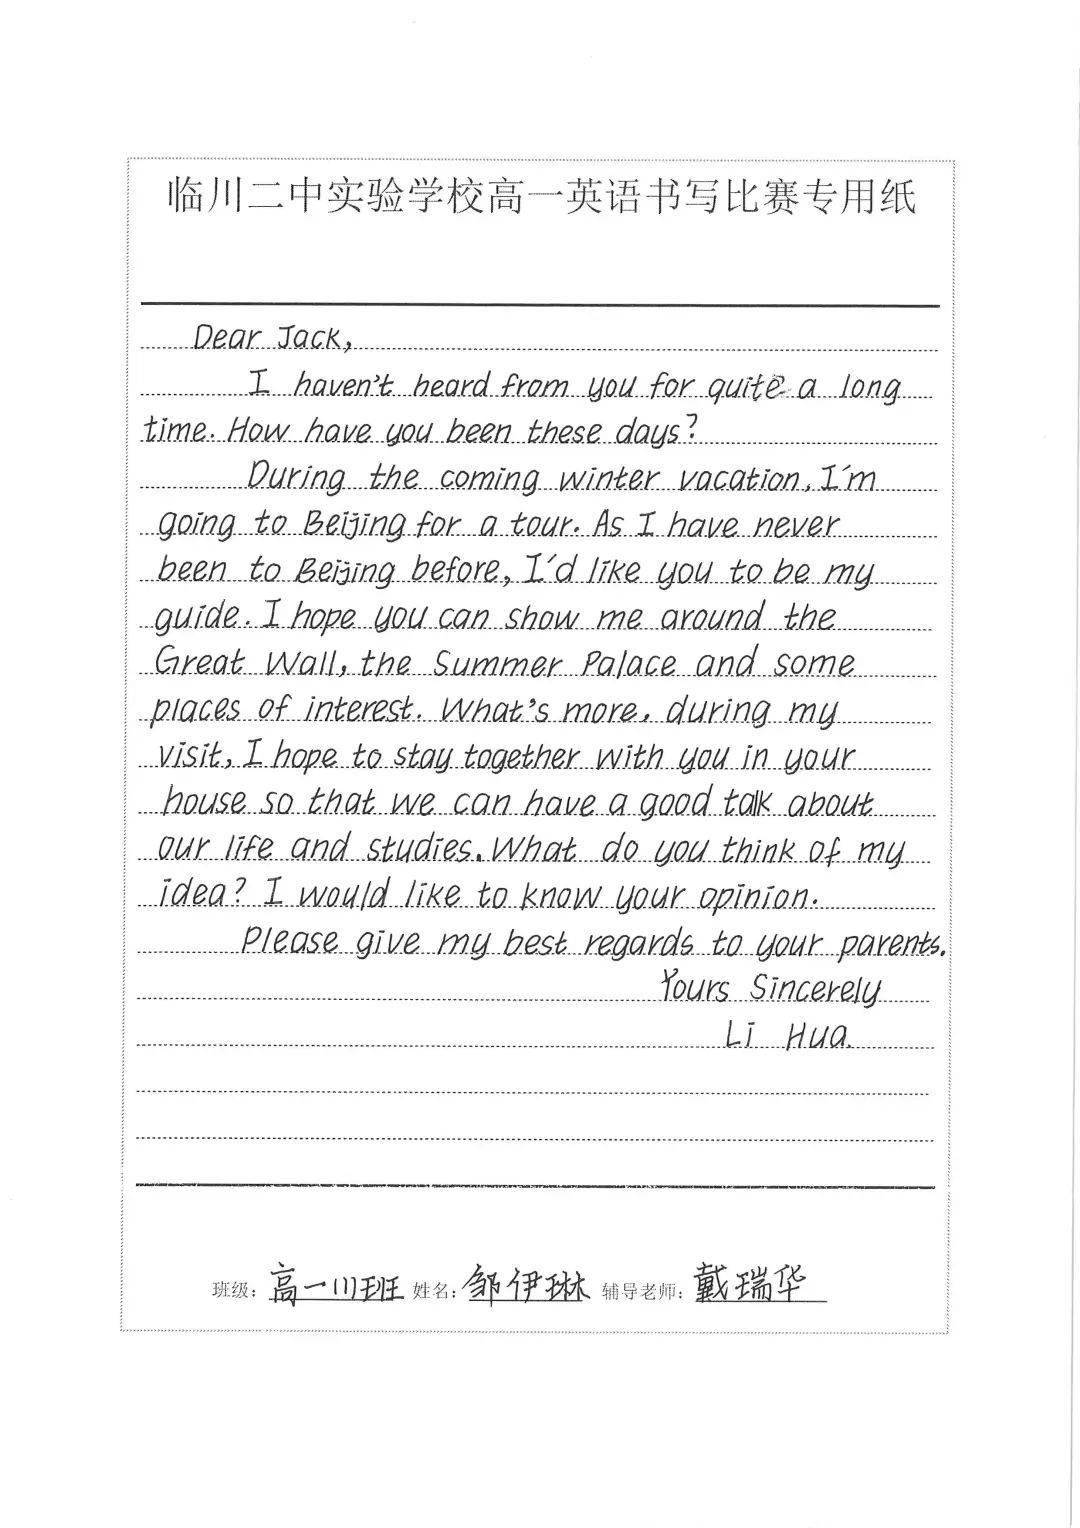 临川二中实验学校高一英语书写比赛专用纸
Dear Jack,
I haven't heard from you for quite a long
time. How have you been these days?
During the coming winter vacation, I'm
going to Beijing for a tour. As I have never
been to Beijing before, I'd like you to be my
guide. I hope you can show me around the
Great Wall, the Summer Palace and some
places of interest. What's more, during my
visit, I hope to stay together with you in your
house so that we can have a good talk about
our life and studies. What do you think of my
idea? I would like to know your opinion.
Please give my best regards to your parents.
Yours Sincerely
Li Hua.
班级: 高一川班 姓名: 邹伊琳 辅导老师: 戴瑞华